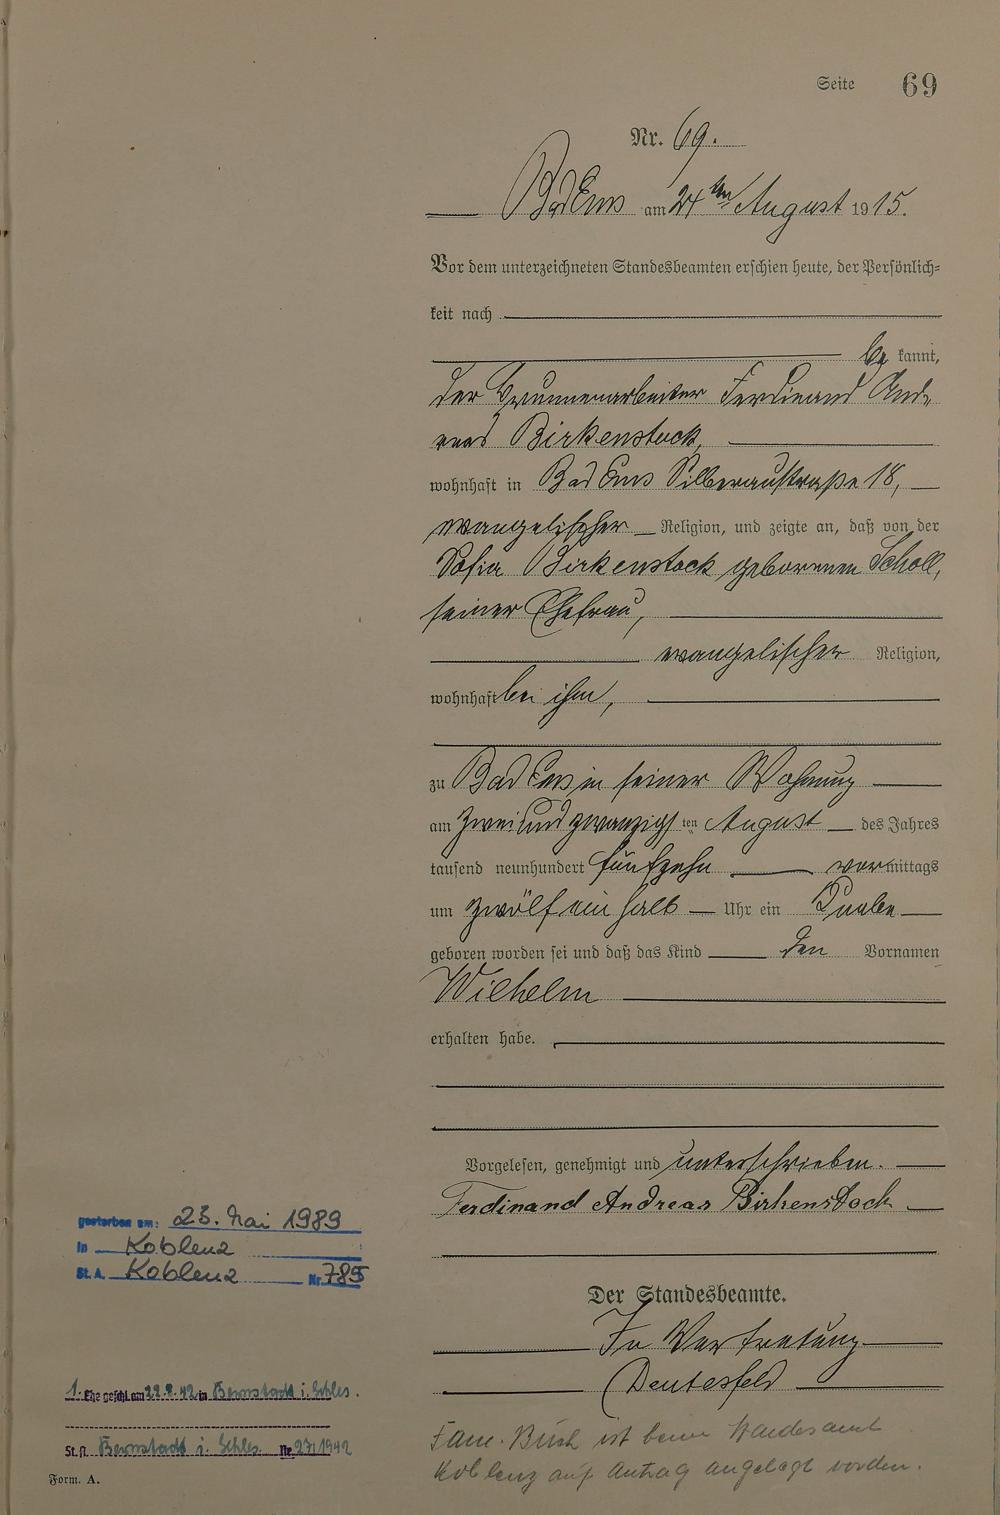 Seite 69
Nr. 69.
Bad Ems am 24ten August 1915.
Vor dem unterzeichneten Standesbeamten erschien heute, der Persönlich-
keit nach
be kannt,
der Brunnenarbeiter Ferdinand And-
reas Birkenstock,
wohnhaft in Bad Ems Silberaustraße 18,
evangelischer Religion, und zeigte an, daß von der
Sofia Birkenstock geborenen Scholl,
seiner Ehefrau,
evangelischer Religion,
wohnhaft bei ihm,
zu Bad Ems in seiner Wohnung
am zwei und zwanzigsten August des Jahres
tausend neunhundert fünfzehn vormittags
um zwölf ein halb Uhr ein Knabe
geboren worden sei und daß das Kind den Vornamen
Wilhelm
erhalten habe.
Vorgelesen, genehmigt und unterschrieben.
Ferdinand Andreas Birkenstock
gestorben am: 23. Mai 1989
in Koblenz
St. A. Koblenz Nr. 785
Der Standesbeamte.
In Vertretung
Deutesfeld
1. Ehe geschl. am 22.8.42 in Bernstadt i. Schles.
St. A. Bernstadt i. Schles. Nr. 27/1942
Fam. Buch ist beim Standesamt
Koblenz auf Antrag angelegt worden.
Form. A.